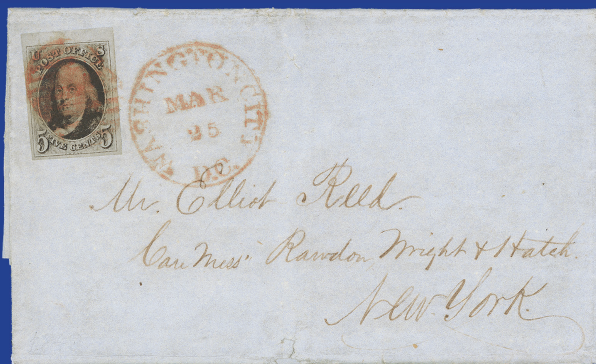 POST OFFICE
5 FIVE CENTS 5
WASHINGTON CITY
MAR
25
D.C.
Mr. Elliot Reed.
Care Mess^rs Rawdon Wright & Hatch.
New. York.